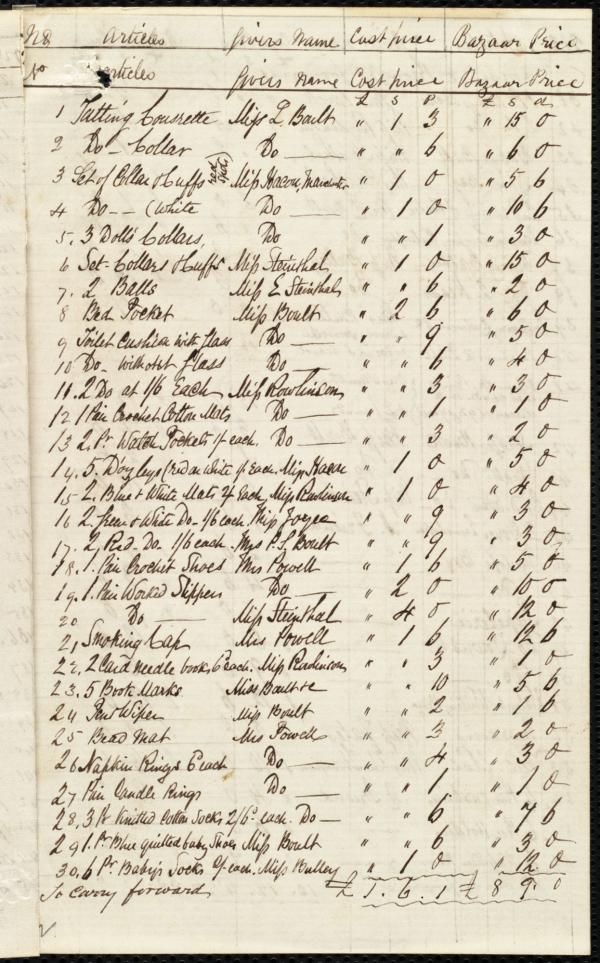 No Articles Givers Name Cost price Bazaar Price
No Articles Givers Name Cost price Bazaar Price
£ S P £ S d
1 Tatting Couvrette Miss L Boult " 1 3 " 15 0
2 Do - Collar Do " " 6 " 6 0
3 Set of Collar & Cuffs (red Spots) Miss Hacon, Manchester " 1 0 " 5 6
4 Do - - (White Do " 1 0 " 10 6
5. 3 Doll's Collars, Do " " 1 " 3 0
6 Set - Collars & Cuffs Miss Steinthal " 1 0 " 15 0
7. 2 Balls Miss E Steinthal " " 6 " 2 0
8 Bed Pocket Miss Boult " 2 6 " 6 0
9 Toilet Cushion with glass Do " " 9 " 5 0
10 Do - without glass Do " " 6 " 4 0
11. 2 Do at 1/6 Each Miss Rawlinson " " 3 " 3 0
12 1 Pair Crochet Cotton Mats Do " " 1 " 1 0
13 2. Pr Watch Pockets 1/ each. Do " " 3 " 2 0
14. 5. D'oyleys (red on white 1/ Each. Miss Hacon " 1 0 " 5 0
15 2. Blue & White Mats 2/ Each, Miss Rawlinson " 1 0 " 4 0
16 2. Green & White Do - 1/6 each Miss Joyce " " 9 " 3 0
17. 2, Red - Do - 1/6 each - Mrs P. S. Boult " " 9 " 3 0
18. 1. Pair Crochet Shoes Mrs Powell " 1 6 " 5 0
19. 1. Pair Worked Slippers Do " 2 0 " 10 0
20 Do Miss Steinthal " 4 0 " 12 0
21, Smoking Cap Mrs Powell " 1 6 " 12 6
22, 2 Card needle books, 6 each. Miss Rawlinson " " 3 " 1 0
23. 5 Book Marks Miss Boult &c " " 10 " 5 6
24 Pen Wiper Miss Boult " " 2 " 1 6
25 Bead Mat Mrs Powell " " 3 " 2 0
26 Napkin Rings 6 each Do " " 4 " 3 0
27 Pair Candle Rings Do " " 1 " 1 0
28, 3 Pr Knitted Cotton Socks 2/6d each. Do " " 6 " 7 6
29 1. Pr Blue quilted baby Shoes Miss Boult " " 6 " 3 0
30. 6 Pr. Baby's Socks 2/ each. Miss Bulley " 1 0 " 12 0
To Carry forward £ 1. 6. 1 £ 8 9 0